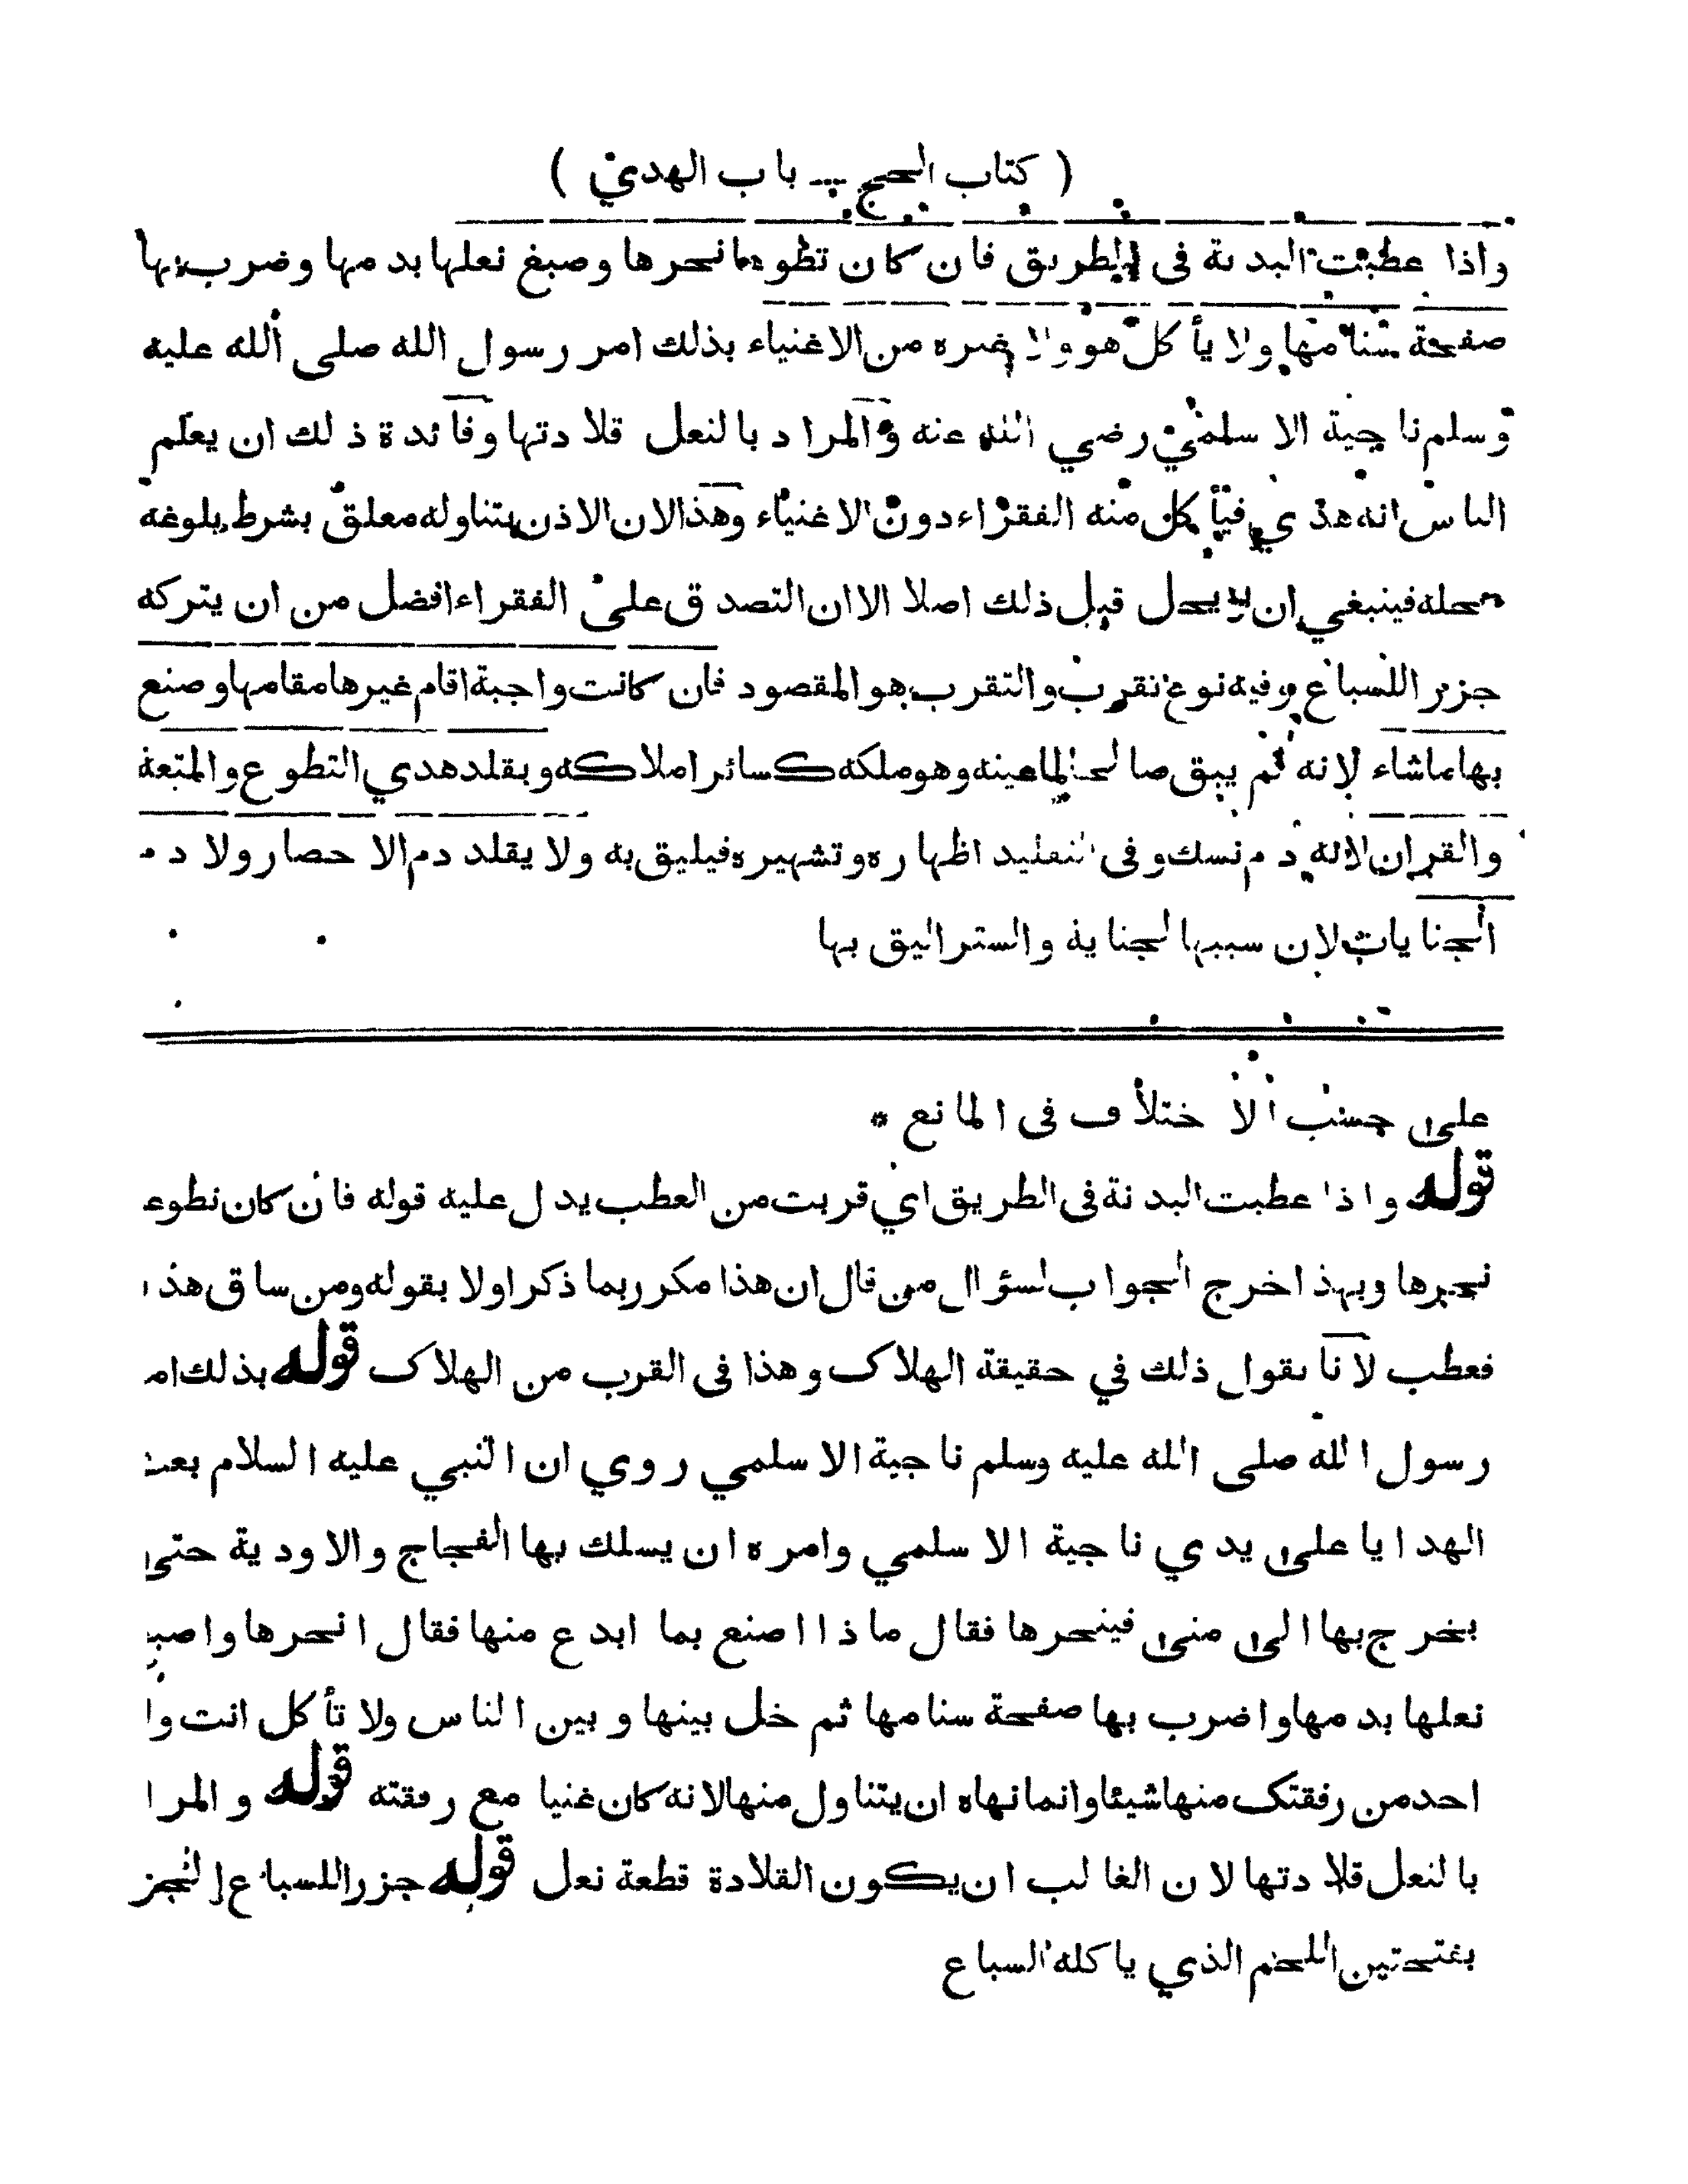 ( كتاب الحج ـــ باب الهدي )
واذا عطبت البدنة فى الطريق فان كان تطوعا نحرها وصبغ نعلها بدمها وضرب بها
صفحة سنامها ولا يأكل هو ولا غيره من الاغنياء بذلك امر رسول الله صلى الله عليه
وسلم ناجية الاسلمي رضي الله عنه والمراد بالنعل قلادتها وفائدة ذلك ان يعلم
الناس انه هدي فيأكل منه الفقراء دون الاغنياء وهذا لان الاذن يتناوله معلق بشرط بلوغه
محله فينبغي ان لا يحل قبل ذلك اصلا الا ان التصدق على الفقراء افضل من ان يتركه
جزرا للسباع وفيه نوع تقرب والتقرب هو المقصود فان كانت واجبة اقام غيرها مقامها وصنع
بها ما شاء لانه لم يبق صالحا لما عينه وهو ملكه كسائر املاكه ويقلد هدي التطوع والمتعة
والقران لانه دم نسك وفى التقليد اظهاره وتشهيره فيليق به ولا يقلد دم الاحصار ولا دم
الجنايات لان سببها الجناية والستر اليق بها
على حسب الاختلاف فى المانع *
قوله واذا عطبت البدنة فى الطريق اي قربت من العطب يدل عليه قوله فان كان تطوعا
نحرها وبهذا خرج الجواب لسؤال من قال ان هذا مكرر بما ذكر اولا بقوله ومن ساق هذ
فعطب لانا نقول ذلك في حقيقة الهلاك وهذا فى القرب من الهلاك قوله بذلك امر
رسول الله صلى الله عليه وسلم ناجية الاسلمي روي ان النبي عليه السلام بعث
الهدايا على يدي ناجية الاسلمي وامره ان يسلك بها الفجاج والاودية حتى
يخرج بها الى منى فينحرها فقال ماذا اصنع بما ابدع منها فقال انحرها واصبغ
نعلها بدمها واضرب بها صفحة سنامها ثم خل بينها وبين الناس ولا تأكل انت ولا
احد من رفقتك منها شيئا وانما نهاه ان يتناول منها لانه كان غنيا مع رفقته قوله والمرا
بالنعل قلادتها لان الغالب ان يكون القلادة قطعة نعل قوله جزرا للسباع الجزر
بفتحتين اللحم الذي ياكله السباع